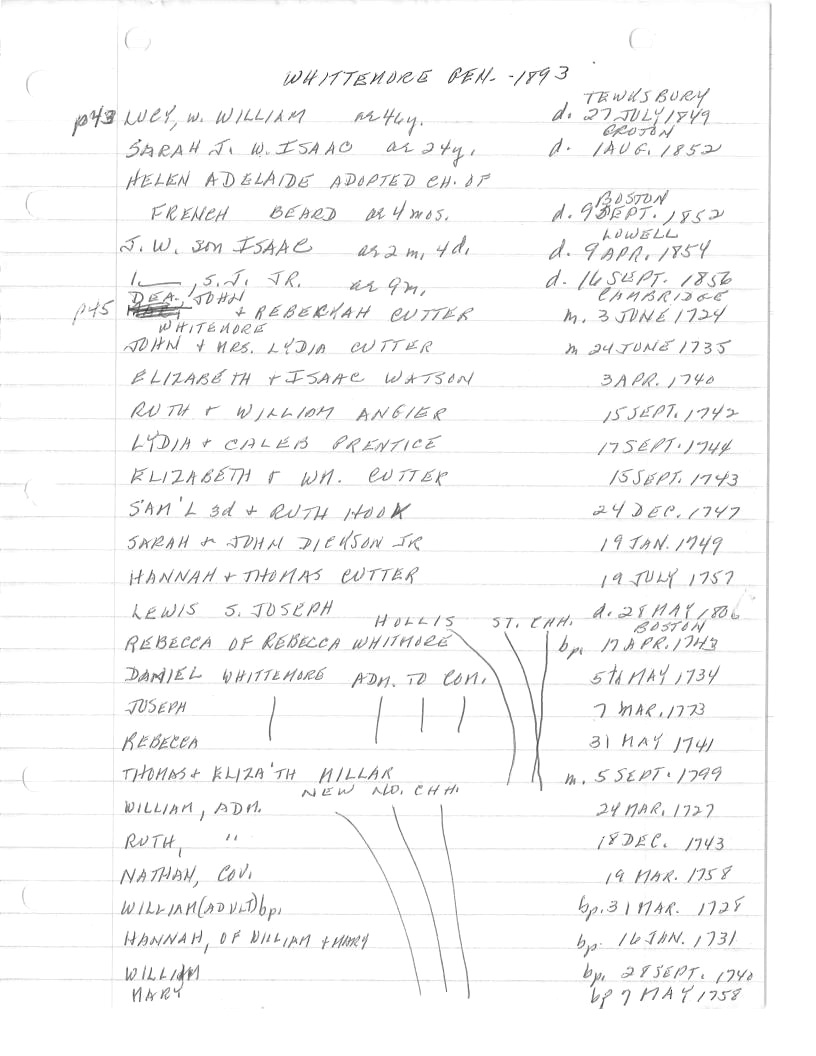 WHITTEMORE GEN. - 1893
TEWKSBURY
p43 LUCY, W. WILLIAM ae 46y. d. 27 JULY 1849
GROTON
SARAH J. W. ISAAC ae 24y. d. 1 AUG. 1852
HELEN ADELAIDE ADOPTED CH. OF
BOSTON
FRENCH BEARD ae 4 mos. d. 9 SEPT. 1852
LOWELL
J. W. son ISAAC ae 2 m, 4 d. d. 9 APR. 1854
1. ___, S. J. JR. ae 9 m. d. 16 SEPT. 1856
DEA. JOHN CAMBRIDGE
p45 + REBEKYAH CUTTER m. 3 JUNE 1724
WHITEMORE
JOHN + MRS. LYDIA CUTTER m 24 JUNE 1735
ELIZABETH + ISAAC WATSON 3 APR. 1740
RUTH + WILLIAM ANGIER 15 SEPT. 1742
LYDIA + CALEB PRENTICE 17 SEPT. 1744
ELIZABETH + WM. CUTTER 15 SEPT. 1743
SAM'L 3d + RUTH HOOK 24 DEC. 1747
SARAH + JOHM DICKSON JR 19 JAN. 1749
HANNAH + THOMAS CUTTER 19 JULY 1757
LEWIS S. JOSEPH d. 28 MAY 1806
HOLLIS ST. CHH. BOSTON
REBECCA OF REBECCA WHITMORE bp. 17 APR. 1743
DANIEL WHITTEMORE ADM. TO COM. 5th MAY 1734
JOSEPH 7 MAR. 1773
REBECCA 31 MAY 1741
THOMAS + ELIZA'TH MILLAR m. 5 SEPT. 1799
NEW NO. CHH.
WILLIAM, ADM. 24 MAR. 1727
RUTH, " 18 DEC. 1743
NATHAN, COV. 19 MAR. 1758
WILLIAM (ADULT) bp. bp. 31 MAR. 1728
HANNAH, OF WILLIAM + MARY bp. 16 JAN. 1731
WILLIAM bp. 28 SEPT. 1740
MARY bp 7 MAY 1758